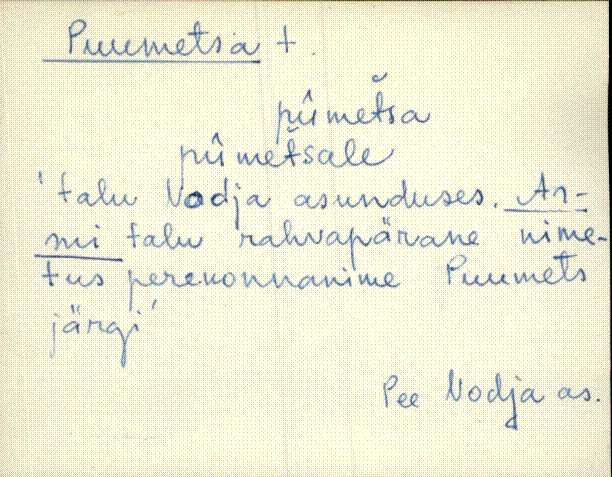 Puumetsa t.
pûmeťša
pûmeťšale
'talu Vodja asunduses. As-
mi talu rahvapärane nime-
tus perekonnanime Puumets
järgi'
Pee Vodja as.